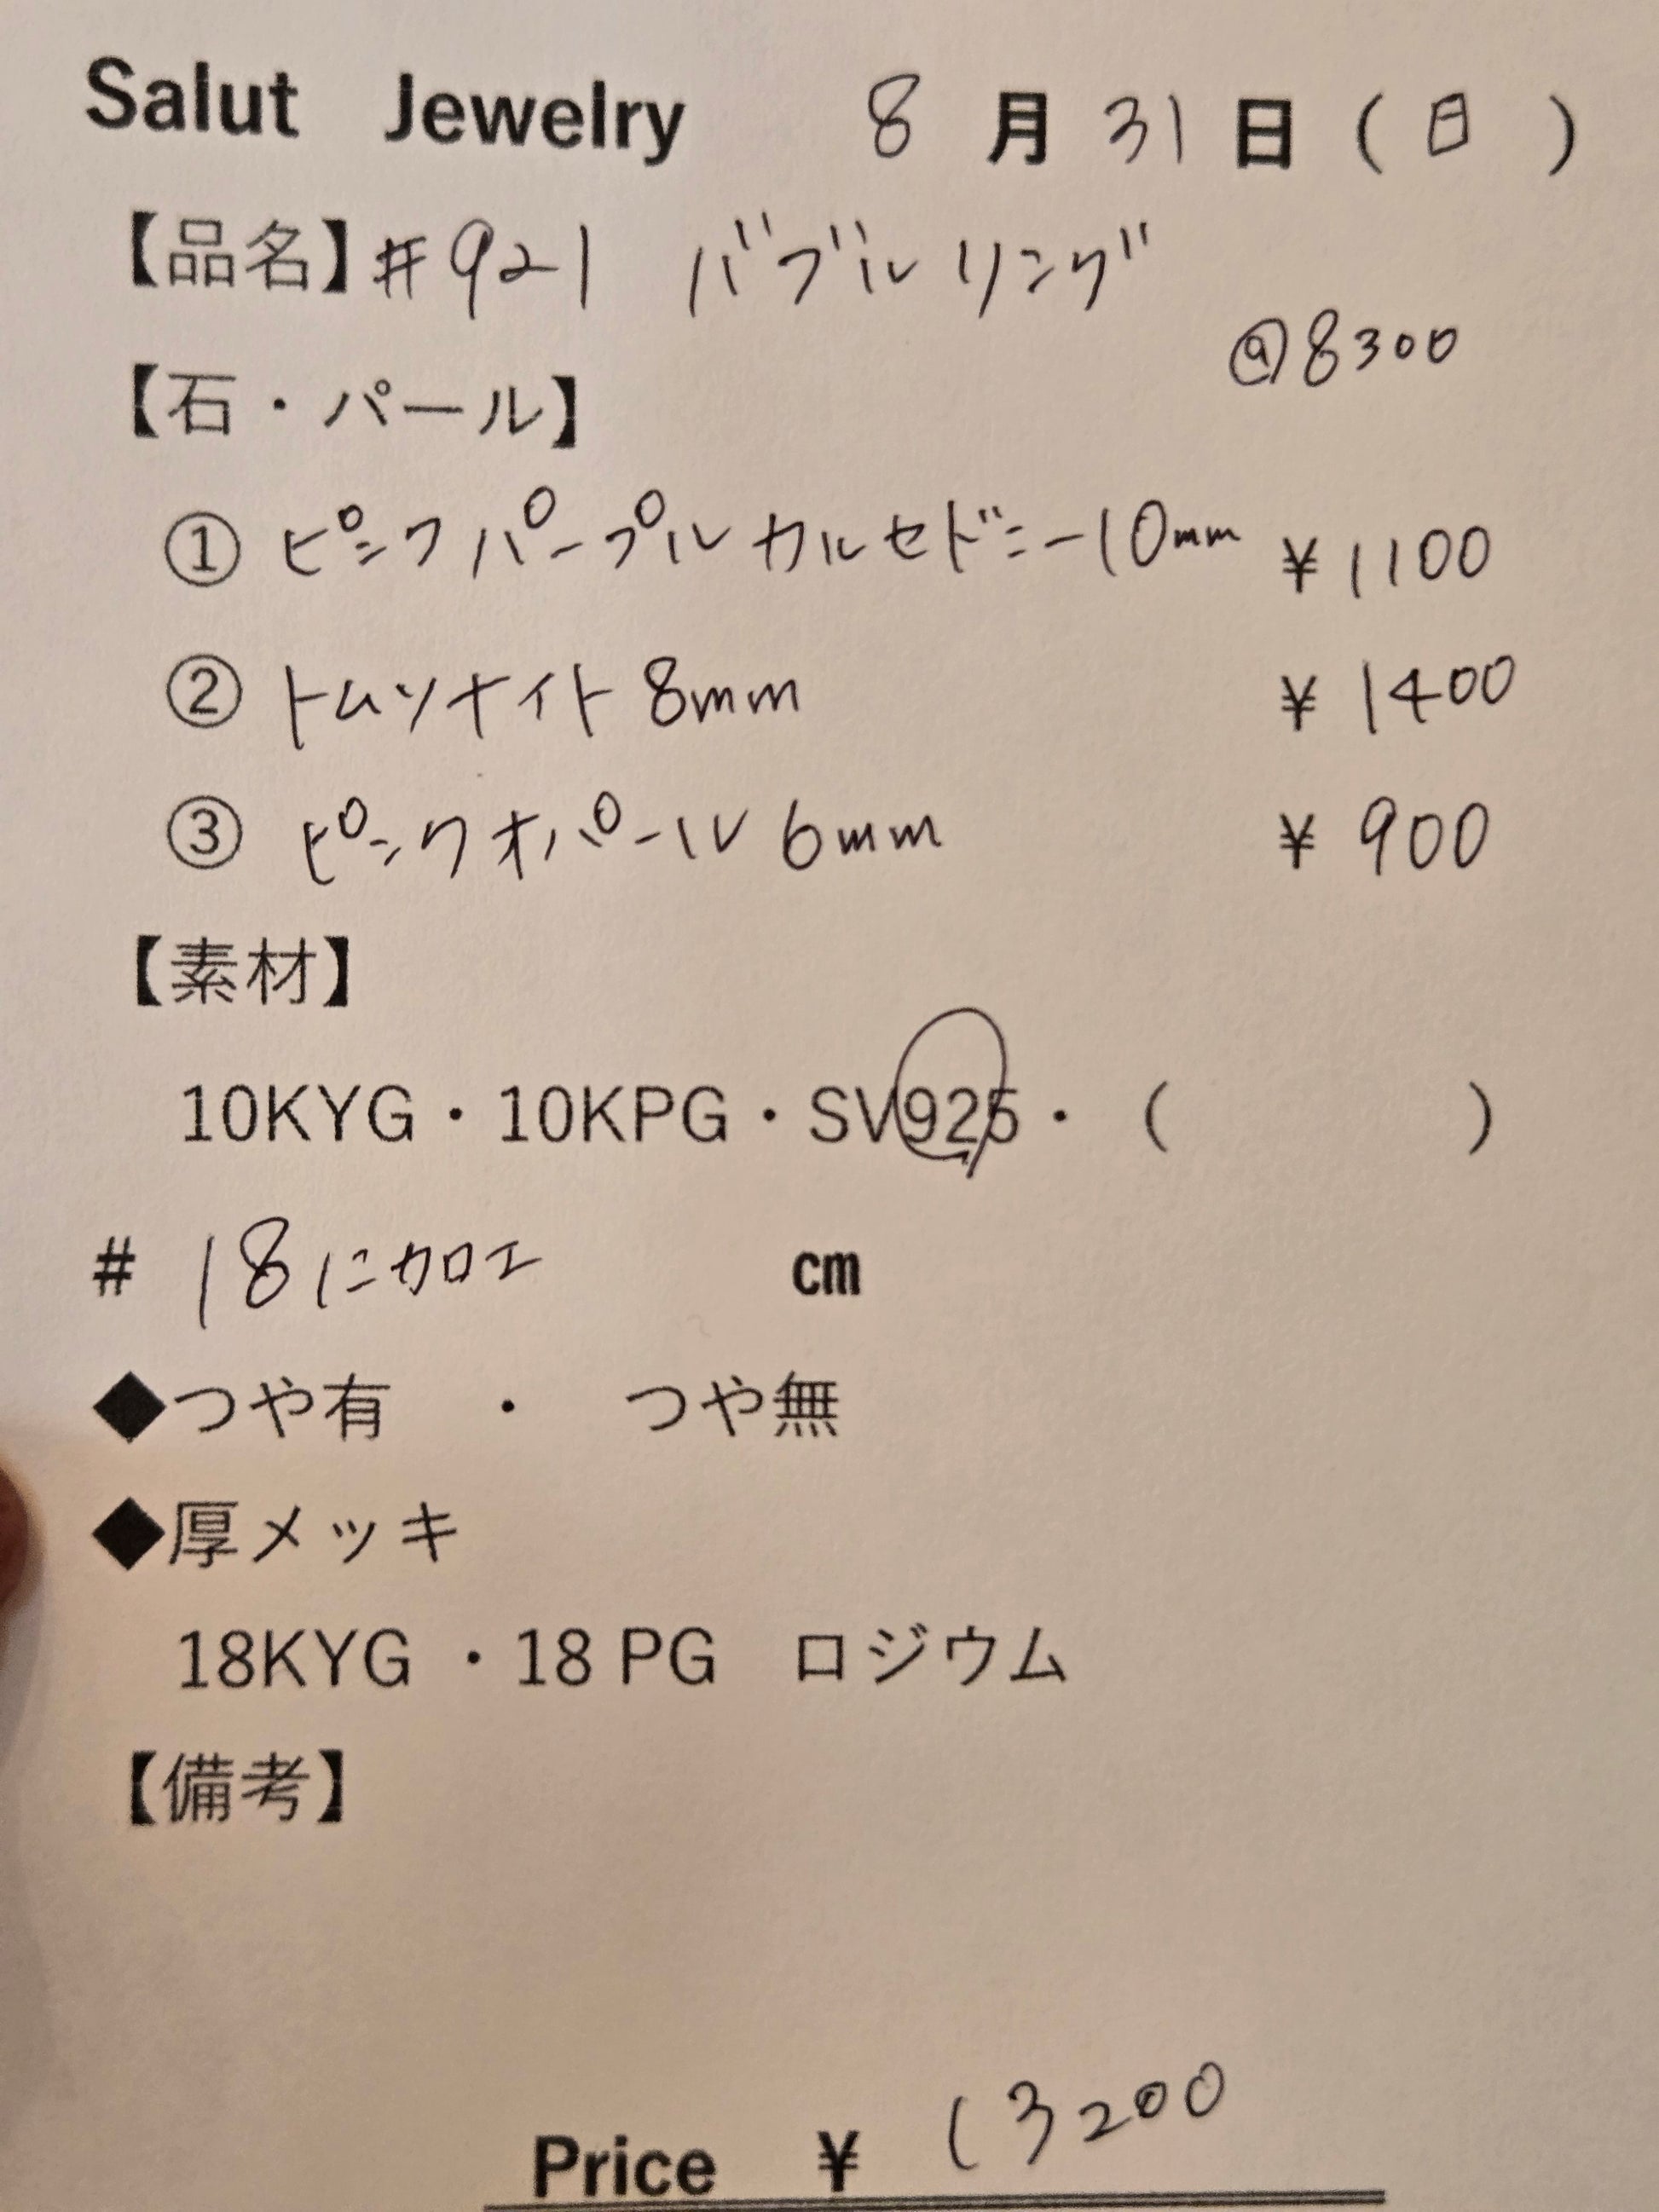 Salut Jewelry 8月31日(日)
【品名】#921 バブルリング
@8300
【石・パール】
① ピンクパープルカルセドニー10mm ¥1100
② トムソナイト 8mm ¥1400
③ ピンクオパール 6mm ¥900
【素材】
10KYG・10KPG・SV925・( )
# 18に加工 cm
◆つや有 ・ つや無
◆厚メッキ
18KYG ・18 PG ロジウム
【備考】
Price ¥ 13200